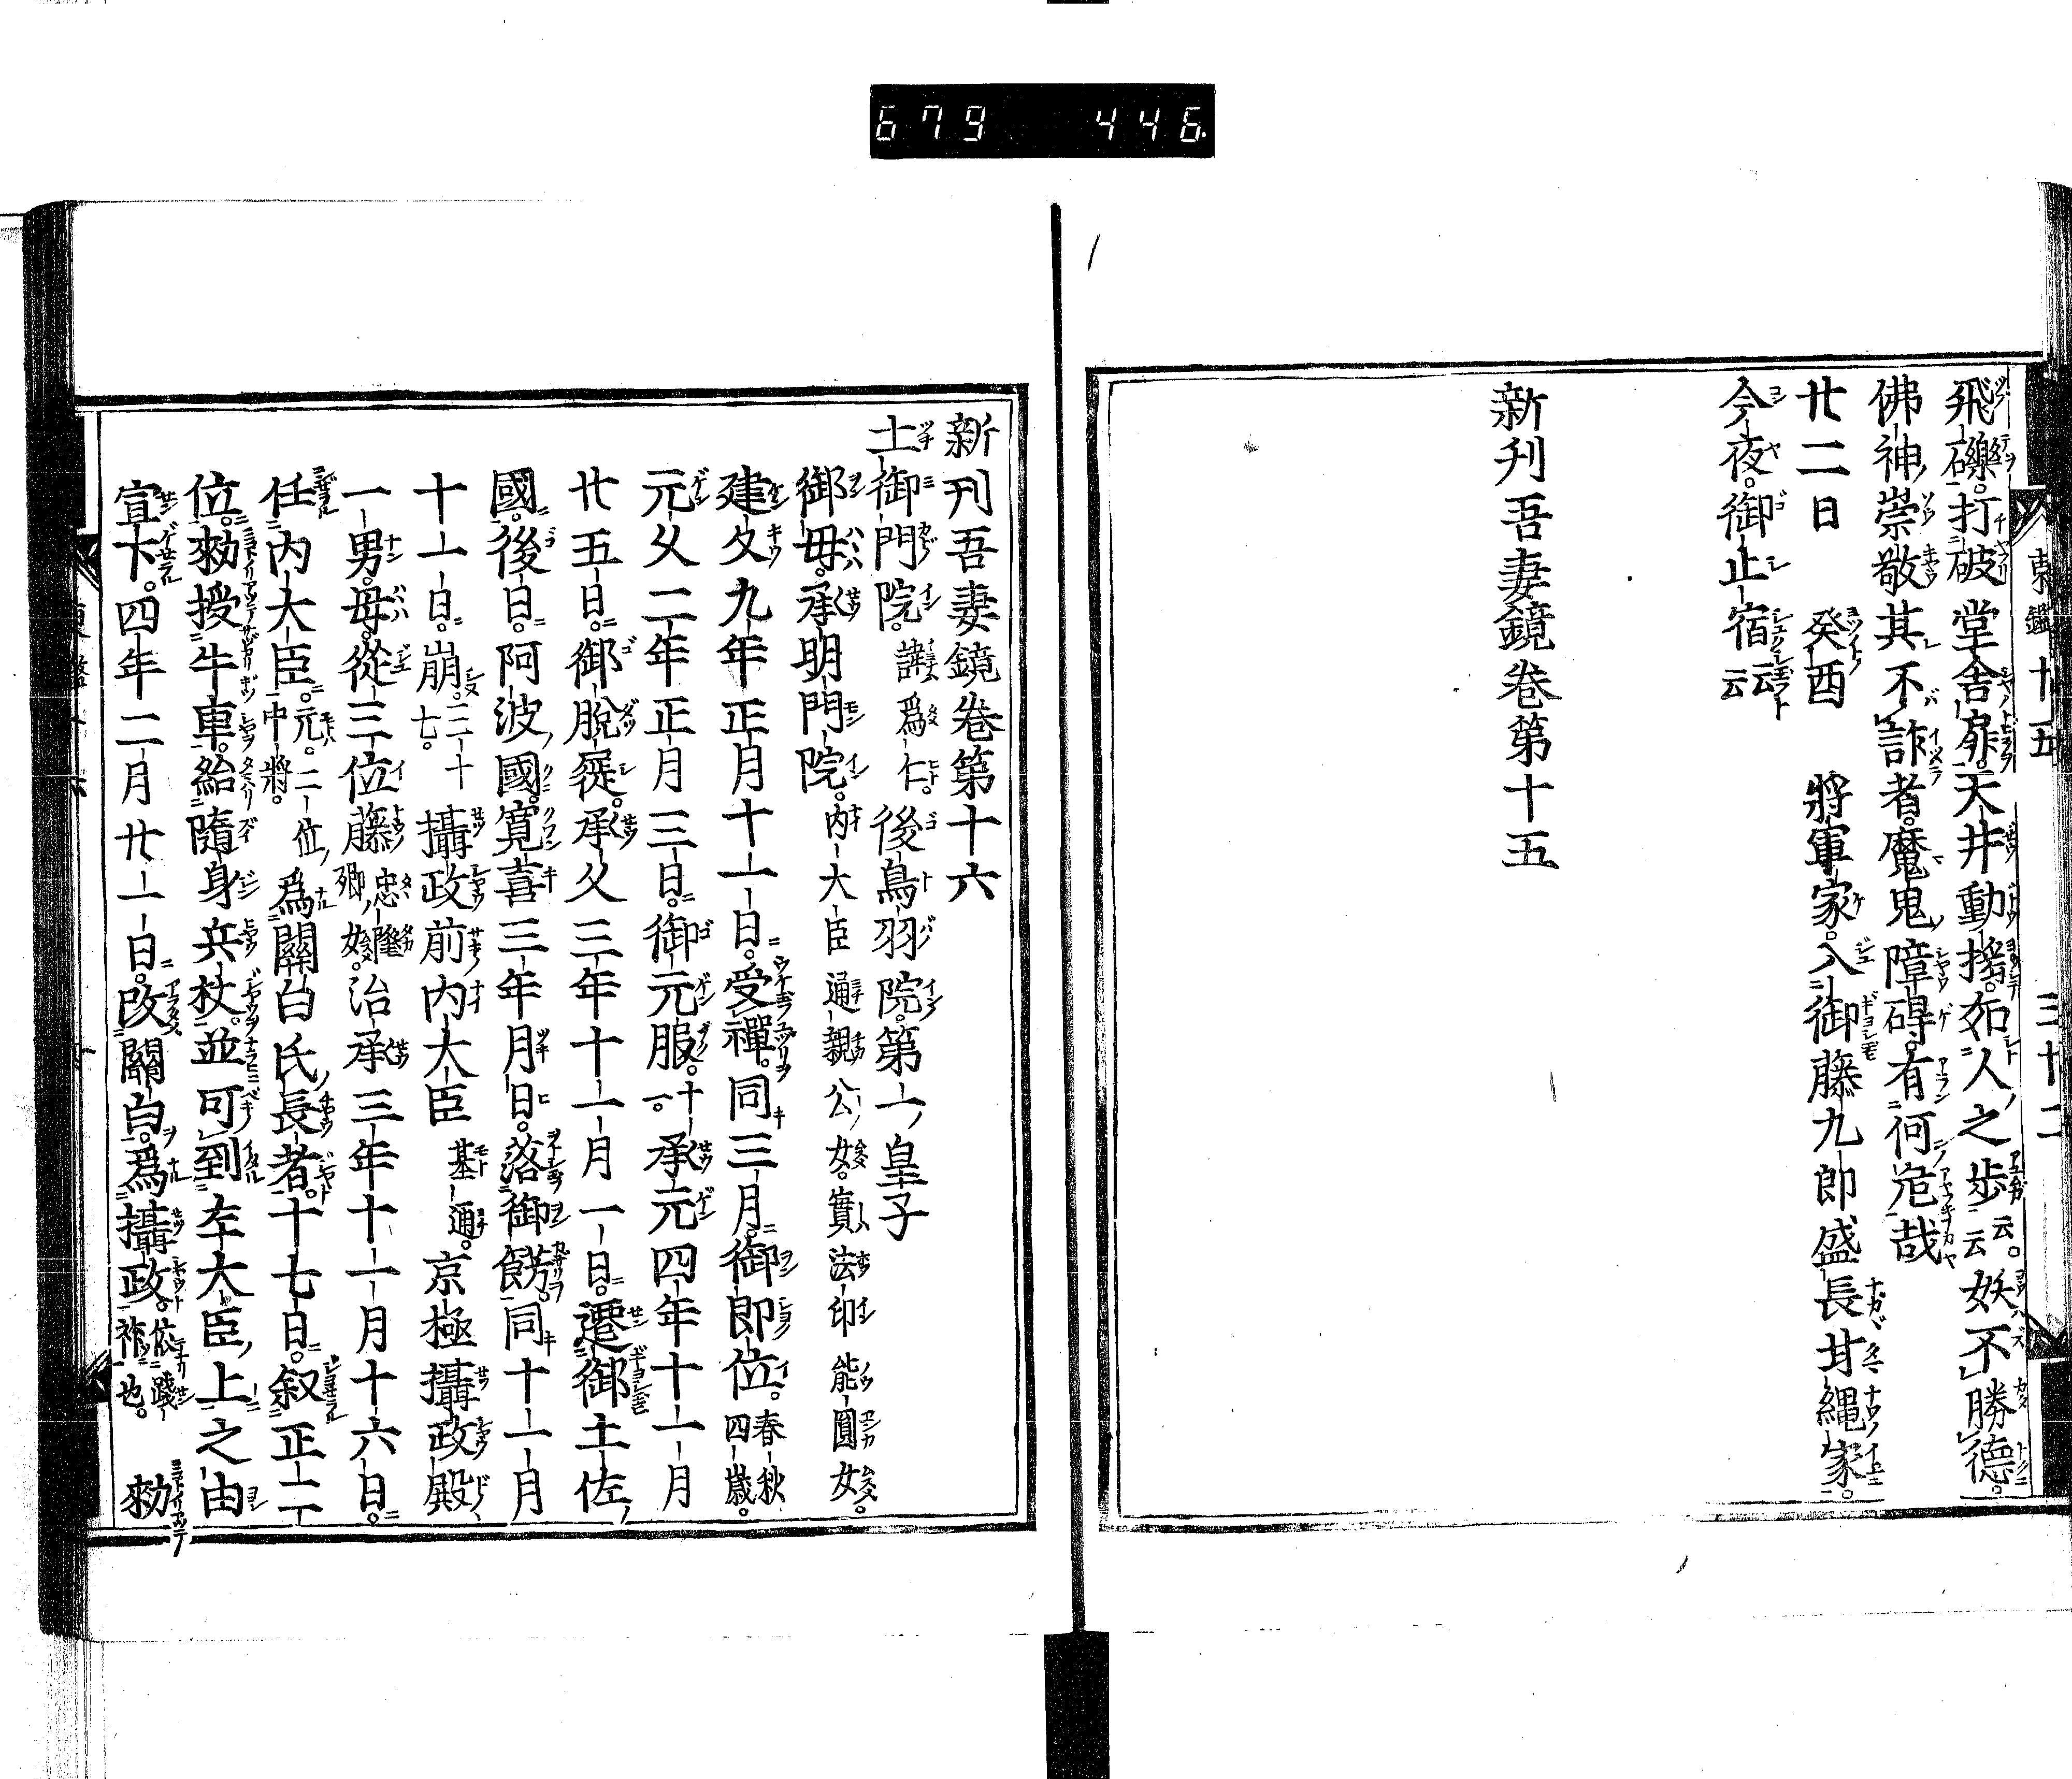 679 446.
東鑑 十五 三十二
飛礫。打破堂舎扉。天井動揺。如人之歩云云。妖不勝德。
佛神崇敬其不詐者。魔鬼障碍。有何危哉
廿二日 癸酉 將軍家。入御藤九郎盛長甘縄家。
今夜。御止宿云云
新刊吾妻鏡卷第十五
新刊吾妻鏡卷第十六
土御門院。諱爲仁。後鳥羽院。第一皇子
御母。承明門院。内大臣通親公女。實法印能圓女。
建久九年正月十一日。受禪。同三月。御即位。春秋四歳。
元久二年正月三日。御元服。十一。承元四年十一月
廿五日。御脫屣。承久三年十一月一日。遷御土佐
國。後日。阿波國。寛喜三年月日。落御餝。同十一月
十一日。崩。三十七。攝政前内大臣基通。京極攝政殿
一男。母。從三位藤忠隆卿女。治承三年十一月十六日。
任内大臣。元。二位中將。爲關白氏長者。十七日。叙正二
位。勅授牛車。給隨身兵杖。並可到左大臣上之由
宣下。四年二月廿一日。改關白。爲攝政。依踐祚也。勅